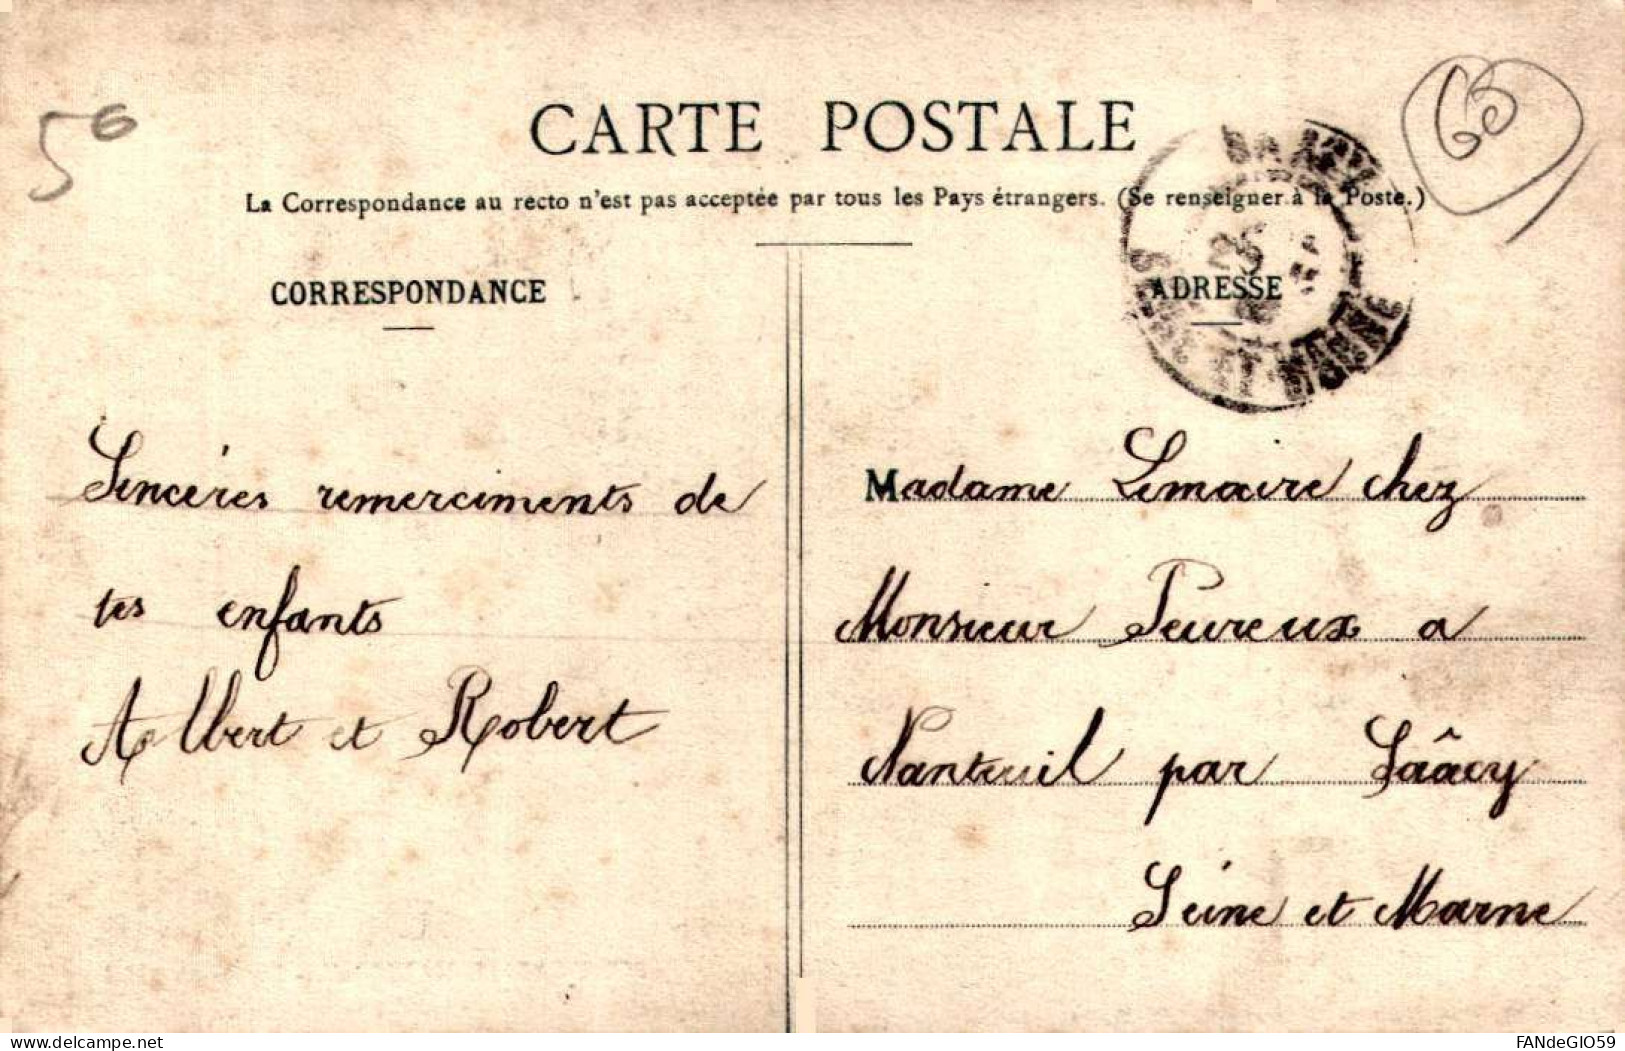 56
CARTE POSTALE
La Correspondance au recto n'est pas acceptée par tous les Pays étrangers. (Se renseigner à la Poste.)
CORRESPONDANCE
Sincéres remerciments de
tes enfants
Albert et Robert
ADRESSE
ET MARNE
Madame Lemaire chez
Monsieur Peureux a
Nanteuil par Sâacy
Seine et Marne
delcampe.net
FANdeGIO59